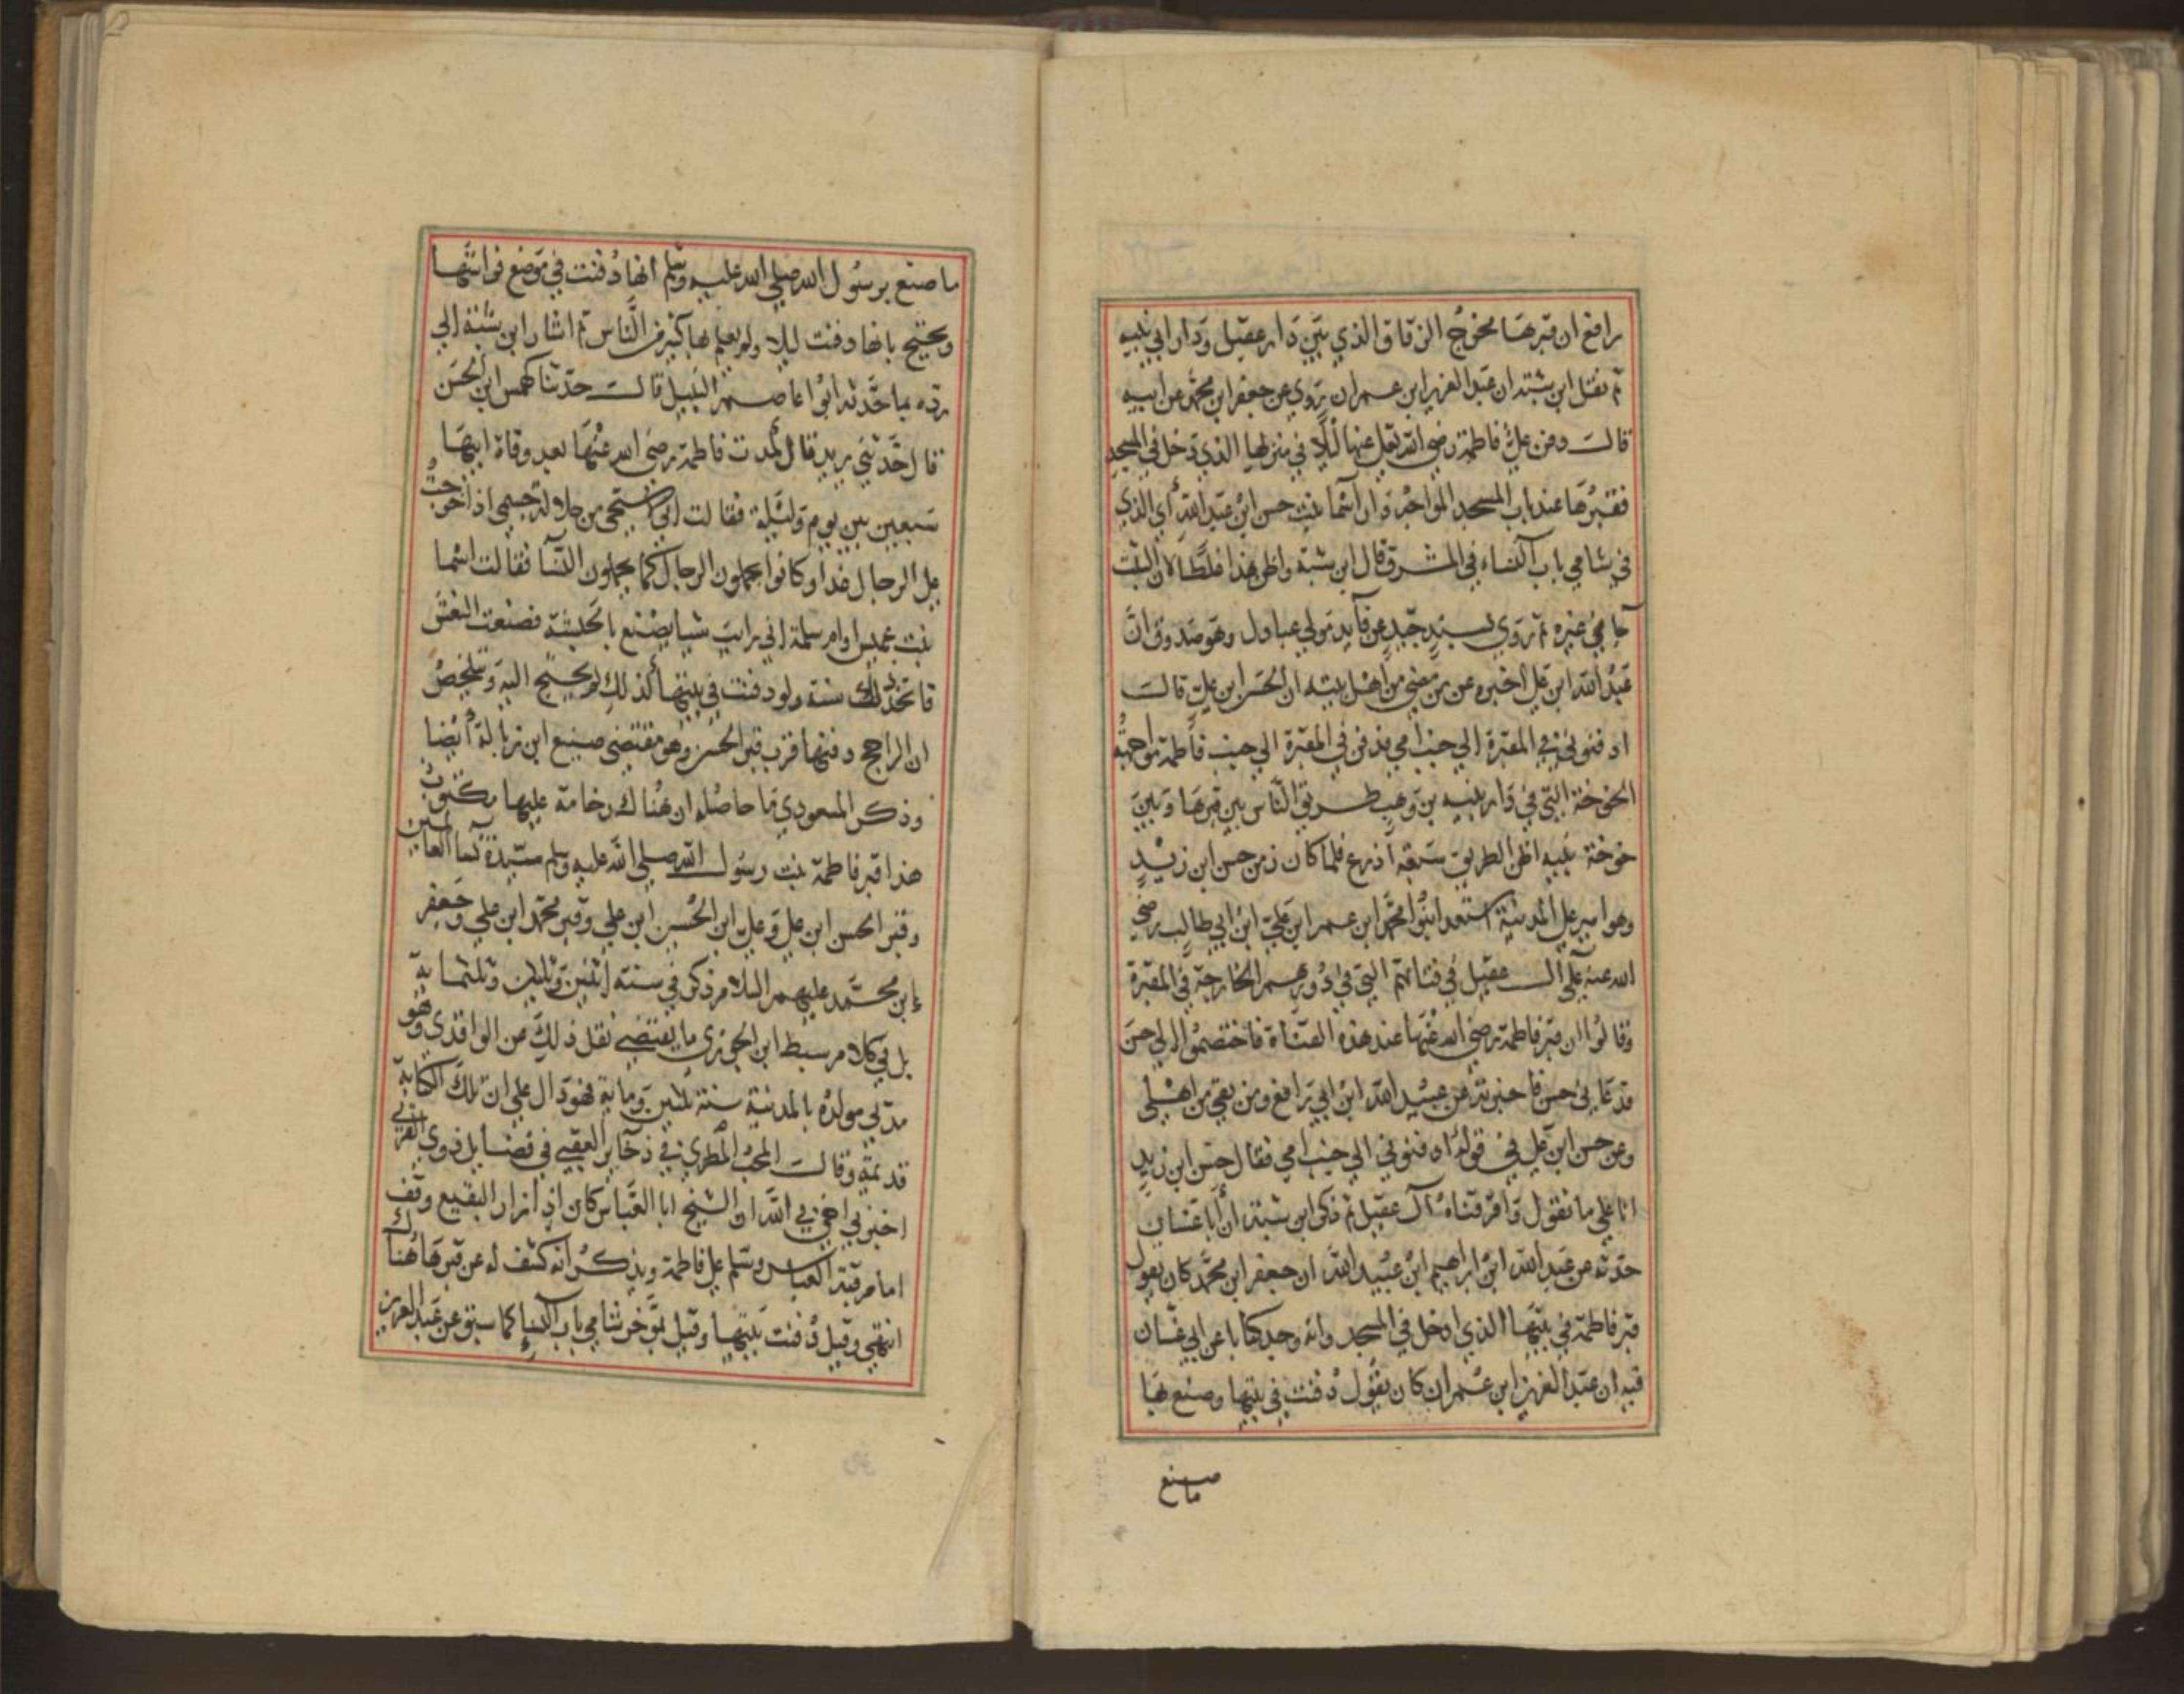 رافع ان قبرها مخرج الزقاق الذي بين دار عقيل ودار ابي نبيه
ثم نقل ابن شبته ان عبد العزيز ابن عمران روي عن جعفر ابن محمد عن ابيه
قالت دفن علي فاطمة رضي الله تعلي عنها ليلا في منزلها الذي دخل في المسجد
فقبرها عند باب المسجد المواجه دار اسما بنت حسن ابن عبد الله أي الذي
في شامي باب النساء في المشرق قال ابن شبة واظن هذا غلطا لان الثبت
جا في غيره ثم روي بسند جيد عن فآيد مولي عبادل وهو صدوق انّ
عبد الله ابن علي اخبره عن من مضي من اهل بيته ان الحسن ابن علي قالت
ادفنوني في المقبرة الي جنب امي فدفن في المقبرة الي جنب فاطمة مواجهة
الخوخة التي في دار نبيه بن وهب طريق الناس بين قبرها وبين
خوخة نبيه اظن الطريق سبعة اذرع فلما كان زمن حسن ابن زيد
وهو امير علي المدينة استعد ابنوا محمد ابن عمر ابن علي ابن ابي طالب رضي
الله عنه علي الـ عقيل في قناتهم التي في دورهم الخارجة في المقبرة
وقالوا ان قبر فاطمة رضي الله عنها عند هذه القناة فاختصموا الي حسن
فدعاني حسن فاخبرته عن عبيد الله ابن ابي رافع ومن بقي من اهلي
وعن حسن ابن علي في قوله ادفنوني الي جنب امي فقال حسن ابن زيد
انا علي ما تقول واقر قناة آل عقيل ثم ذكر ابن شبة ان أبا غسان
حدثه عن عبد الله ابن ابراهيم ابن عبيد الله ان جعفر ابن محمد كان يقول
قبر فاطمة في بيتها الذي ادخل في المسجد وانه وجد كتابا عن ابي غسان
فيه ان عبد العزيز ابن عمران كان يقول دفنت في بيتها وصنع بها
ما صنع
ما صنع برسول الله صلي الله عليه وسلم انها دفنت في موضع فراشها
ويحتج بانها دفنت ليلا ولم يعلم بها كثير من الناس ثم اشار ابن شبة الي
رده بما حدثه ابوا عاصم النبيل قالت حدثنا كهمس ابن الحسن
قال حدثني يزيد قال كمدت فاطمة رضي الله عنها بعد وفاة ابيها
سبعين بين يوم وليلة فقالت اني استحي من جلالة جسمي اذا خرجتُ
علي الرجال غدا وكانوا يحملون الرجال كما يحملون النسآ فقالت اسما
بنت عميس او ام سلمة اني رايت شيا يصنع بالحبشة فصنعت النعش
فاتخذ ذلك سنة ولو دفنت في بيتها لذلك لم يحتج اليه وتلخص
ان الراجح دفنها قرب قبر الحسن وهو مقتضي صنيع ابن زبالة أيضا
وذكر المسعودي ما حاصله ان هناك رخامة عليها مكتوب
هذا قبر فاطمة بنت رسول الله صلي الله عليه وسلم سيدة نسآ العالمين
وقبر الحسن ابن علي وعلي ابن الحسين ابن علي وقبر محمد ابن علي وجعفر
إبن محمد عليهم السلام ذكر في سنته اثنين وثلثين وثلثماية
بل في كلام سبط ابن الجوزي ما يقتضي نقل ذلك عن الواقدي وهو
مدني مولده بالمدينة سنة ثلثين وماية فهو دال علي ان تلك الكتابة
قديمة وقالت المحب المطري في ذخآير العقبي في فضايل ذوي القربي
اخبرني اخي في الله ان الشيخ ابا العباس كان اذا زار البقيع وقف
امام قبة العباس وسلم علي فاطمة ويذكر انه كشف له عن قبرها هناك
انتهي وقيل دفنت ببيتها وقيل بمؤخر شامي باب النساء كما سبق عن عبد العزيز